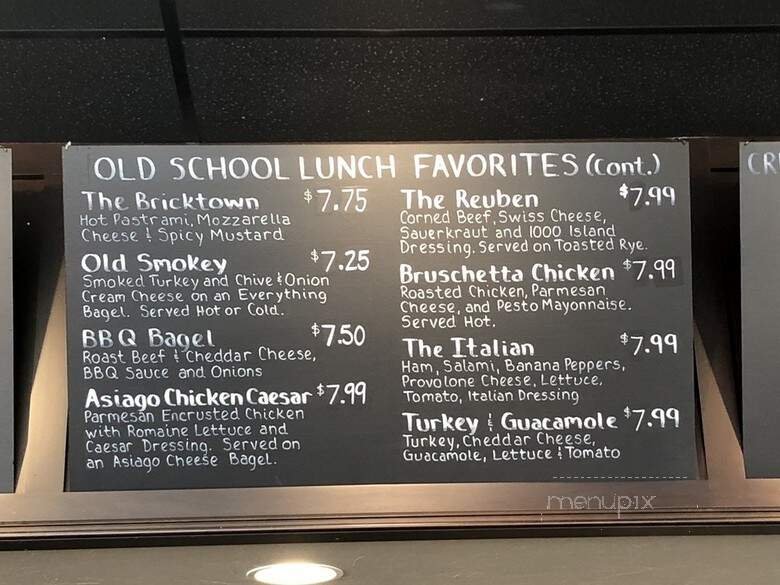 OLD SCHOOL LUNCH FAVORITES (Cont.)
The Bricktown $7.75
Hot Pastrami, Mozzarella
Cheese & Spicy Mustard
Old Smokey $7.25
Smoked Turkey and Chive & Onion
Cream Cheese on an Everything
Bagel. Served Hot or Cold.
BBQ Bagel $7.50
Roast Beef & Cheddar Cheese,
BBQ Sauce and Onions
Asiago Chicken Caesar $7.99
Parmesan Encrusted Chicken
with Romaine Lettuce and
Caesar Dressing. Served on
an Asiago Cheese Bagel.
The Reuben $7.99
Corned Beef, Swiss Cheese,
Sauerkraut and 1000 Island
Dressing. Served on Toasted Rye.
Bruschetta Chicken $7.99
Roasted Chicken, Parmesan
Cheese, and Pesto Mayonnaise.
Served Hot.
The Italian $7.99
Ham, Salami, Banana Peppers,
Provolone Cheese, Lettuce,
Tomato, Italian Dressing
Turkey & Guacamole $7.99
Turkey, Cheddar Cheese,
Guacamole, Lettuce & Tomato
CR
menupix